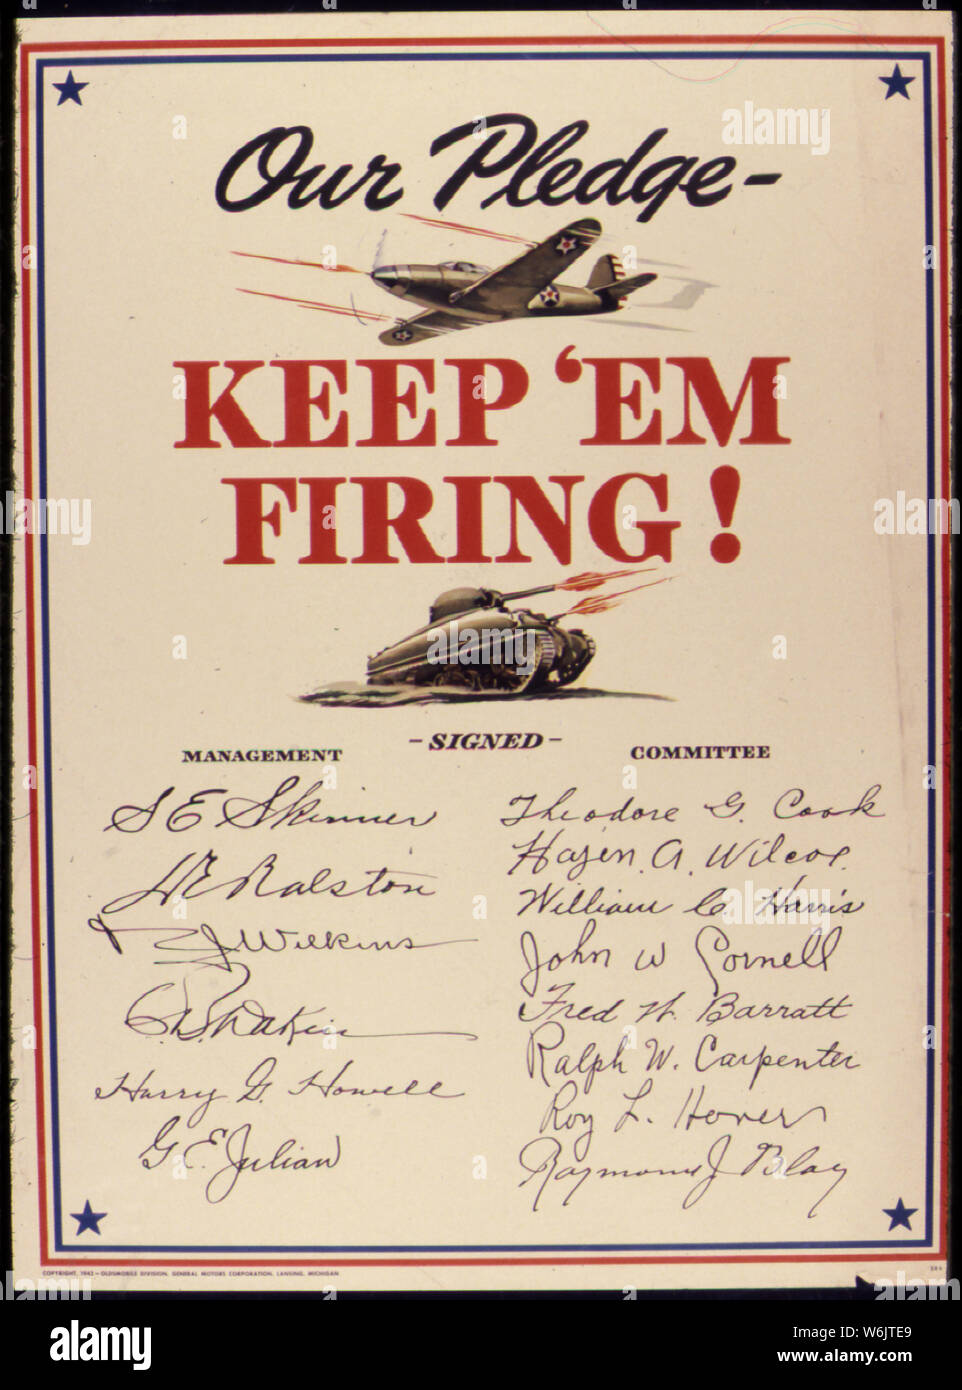 Our Pledge-
KEEP 'EM
FIRING!
-SIGNED-
MANAGEMENT
COMMITTEE
S E Skinner
Ralston
Wilkins
Harry G. Howell
G. E. Julian
Theodore G. Cook
Hazen A. Wilcox
William C. Harris
John W Cornell
Fred W. Barratt
Ralph W. Carpenter
Roy L. Hover
Raymond J Blay
COPYRIGHT, 1942 - OLDSMOBILE DIVISION, GENERAL MOTORS CORPORATION, LANSING, MICHIGAN
alamy
alamy
Image ID: W6JTE9
www.alamy.com